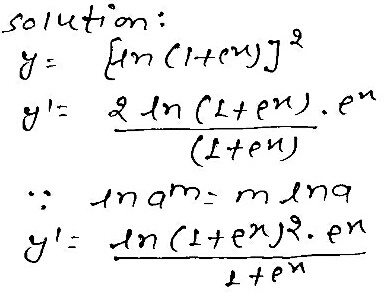 solution:
y = [ln (1+eˣ)]²
y' = 2 ln (1+eˣ) . eˣ
(1+eˣ)
∵ ln aᵐ = m ln a
y' = ln (1+eˣ)². eˣ
1+eˣ